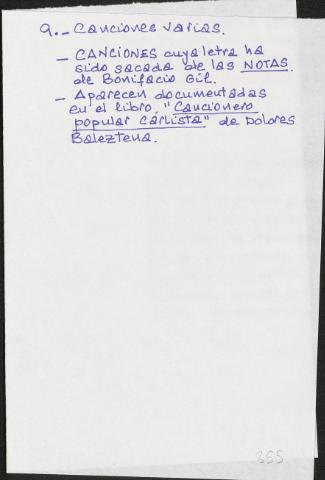 9.- Canciones varias.
- CANCIONES cuya letra ha
sido sacada de las NOTAS
de Bonifacio Gil.
- Aparecen documentadas
en el libro "Cancionero
popular carlista" de Dolores
Baleztena.
355